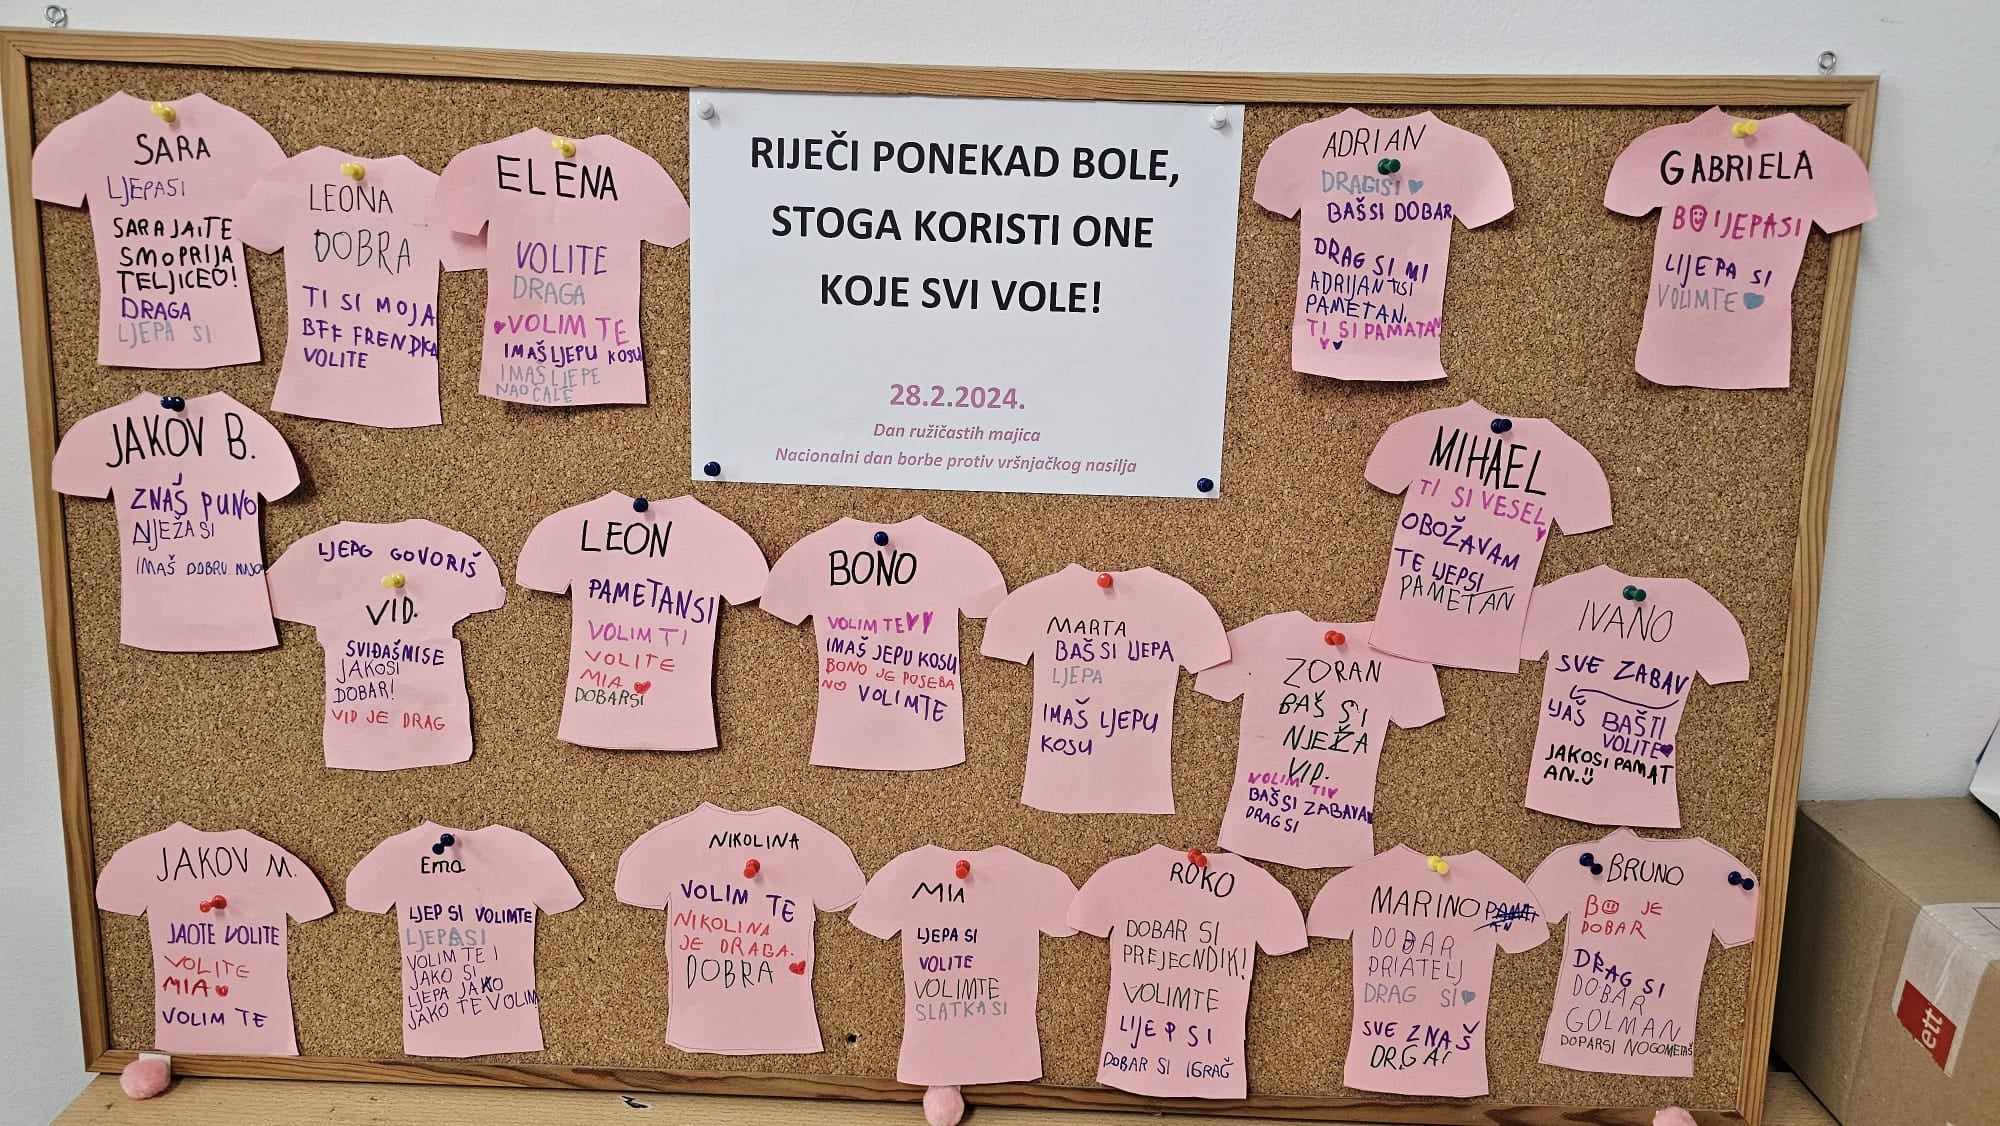 RIJEČI PONEKAD BOLE,
STOGA KORISTI ONE
KOJE SVI VOLE!
28.2.2024.
Dan ružičastih majica
Nacionalni dan borbe protiv vršnjačkog nasilja
SARA
LJEPASI
SARAJAITE
SMOPRIJA
TELJICE!
DRAGA
LJEPA SI
LEONA
DOBRA
TI SI MOJA
BFF FRENDICA
VOLITE
ELENA
VOLITE
DRAGA
VOLIM TE
IMAŠ LJEPU KOSU
IMAŠ LJEPE
NAOČALE
ADRIAN
DRAGISI
BAŠ SI DOBAR
DRAG SI MI
ADRIJAN TISI
PAMETAN.
TI SI PAMATAN
GABRIELA
LIJEPASI
LIJEPA SI
VOLIMTE
JAKOV B.
ZNAŠ PUNO
NJEŽA SI
IMAŠ DOBRU
LJEPG GOVORIŠ
VID.
SVIĐAŠMISE
JAKOSI
DOBAR!
VID JE DRAG
LEON
PAMETANSI
VOLIM TI
VOLITE
MIA
DOBARSI
BONO
VOLIM TE
IMAŠ JEPU KOSU
BONO JE POSEBA
NO VOLIMTE
MARTA
BAŠ SI LJEPA
LJEPA
IMAŠ LJEPU
KOSU
ZORAN
BAŠ SI
NJEŽA
VID.
VOLIM TI
BAŠ SI ZABAVAN
DRAG SI
MIHAEL
TI SI VESEL
OBOŽAVAM
TE LJEPSI
PAMETAN
IVANO
SVE ZABAV
LJAŠ BAŠTI
VOLITE
JAKOSI PAMAT
AN.
JAKOV M.
JAOTE VOLITE
VOLITE
MIA
VOLIM TE
Ema
LJEP SI VOLIMTE
LJEPASI
VOLIM TE I
JAKO SI
LJEPA JAKO
JAKO TE VOLIM
NIKOLINA
VOLIM TE
NIKOLINA
JE DRAGA.
DOBRA
MIA
LJEPA SI
VOLITE
VOLIMTE
SLATKA SI
ROKO
DOBAR SI
PREJECNDIK!
VOLIMTE
LIJEP SI
DOBAR SI IGRAČ
MARINO
DOBAR
PRIATELJ
DRAG SI
SVE ZNAŠ
BRUNO
JE
DOBAR
DRAG SI
DOBAR
GOLMAN
DOPARSI NOGOMETAŠ
ett